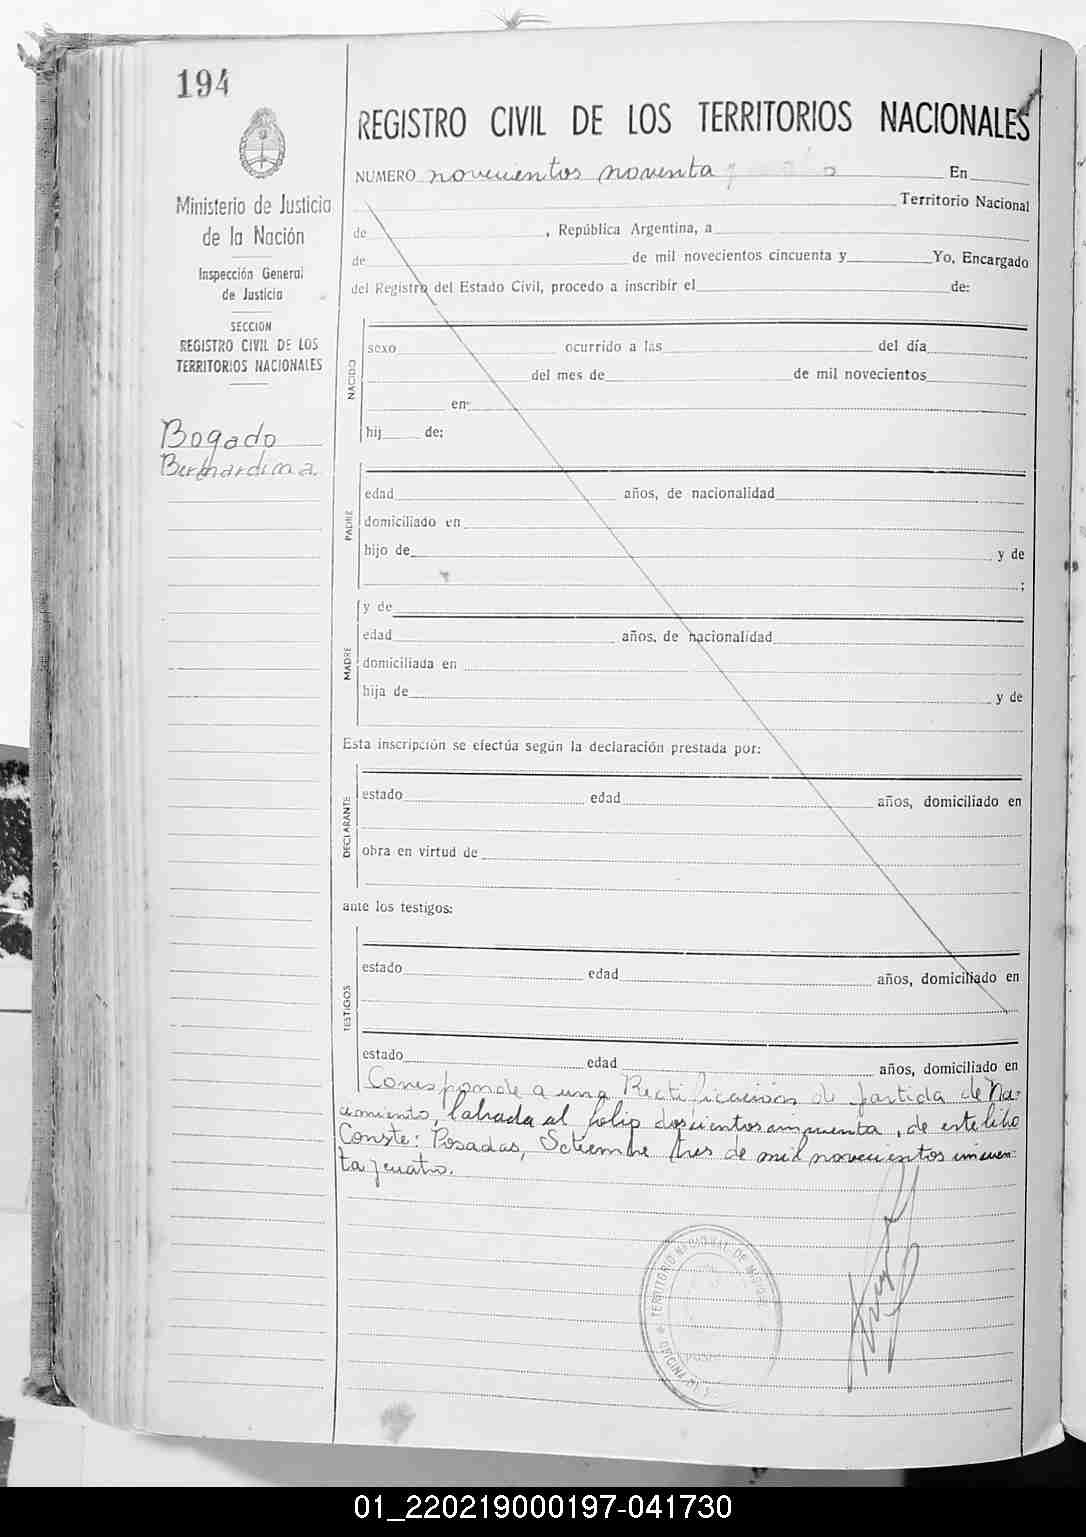 194
Ministerio de Justicia
de la Nación
Inspección General
de Justicia
SECCION
REGISTRO CIVIL DE LOS
TERRITORIOS NACIONALES
Bogado
Bernardina
REGISTRO CIVIL DE LOS TERRITORIOS NACIONALES
NUMERO novecientos noventa En
Territorio Nacional
de , República Argentina, a
de de mil novecientos cincuenta y Yo, Encargado
del Registro del Estado Civil, procedo a inscribir el de:
NACIDO
sexo ocurrido a las del día
del mes de de mil novecientos
en
hij de:
PADRE
edad años, de nacionalidad
domiciliado en
hijo de y de
;
MADRE
y de
edad años, de nacionalidad
domiciliada en
hija de y de
Esta inscripción se efectúa según la declaración prestada por:
DECLARANTE
estado edad años, domiciliado en
obra en virtud de
ante los testigos:
TESTIGOS
estado edad años, domiciliado en
estado edad años, domiciliado en
Coresponde a una Rectificación de partida de Na-
cimiento, labrada al folio doscientos cincuenta, de este libro
Conste: Posadas, Setiembre tres de mil novecientos cincuen-
ta y cuatro.
TERRITORIO NACIONAL DE
OFICINA
01_220219000197-041730